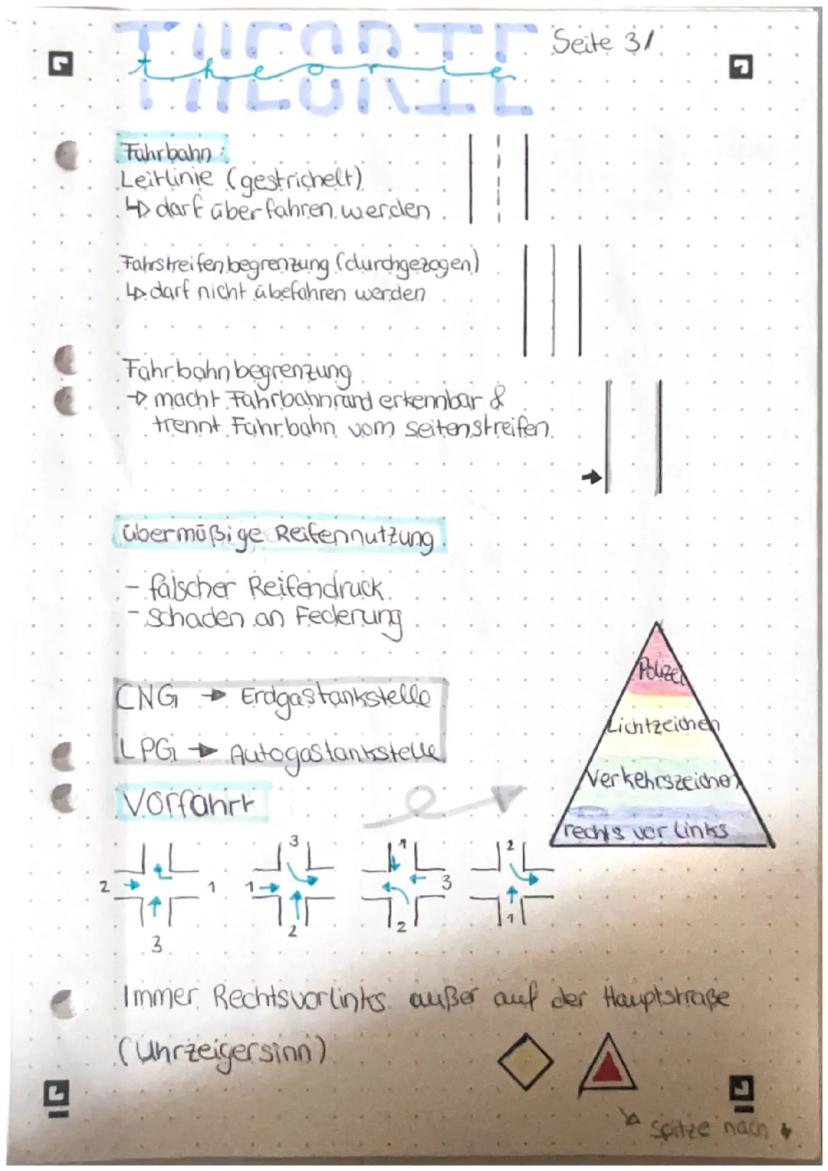 THEORIE
theorie
Seite 3/
Fahrbahn:
Leitlinie (gestrichelt)
↳ darf überfahren werden
Fahrstreifenbegrenzung (durchgezogen)
↳ darf nicht übefahren werden
Fahrbahnbegrenzung
→ macht Fahrbahnrand erkennbar &
trennt Fahrbahn vom seitenstreifen.
übermäßige Reifennutzung
- falscher Reifendruck
- schaden an Federung
CNG → Erdgastankstelle
LPG → Autogastankstelle
Polizei
Lichtzeichen
Verkehrszeichen
rechts vor links
Vorfahrt
2 1 3
3 1 2
1 3 2
2 1
Immer Rechtsvorlinks außer auf der Hauptstraße
(Uhrzeigersinn)
Spitze nach ↓